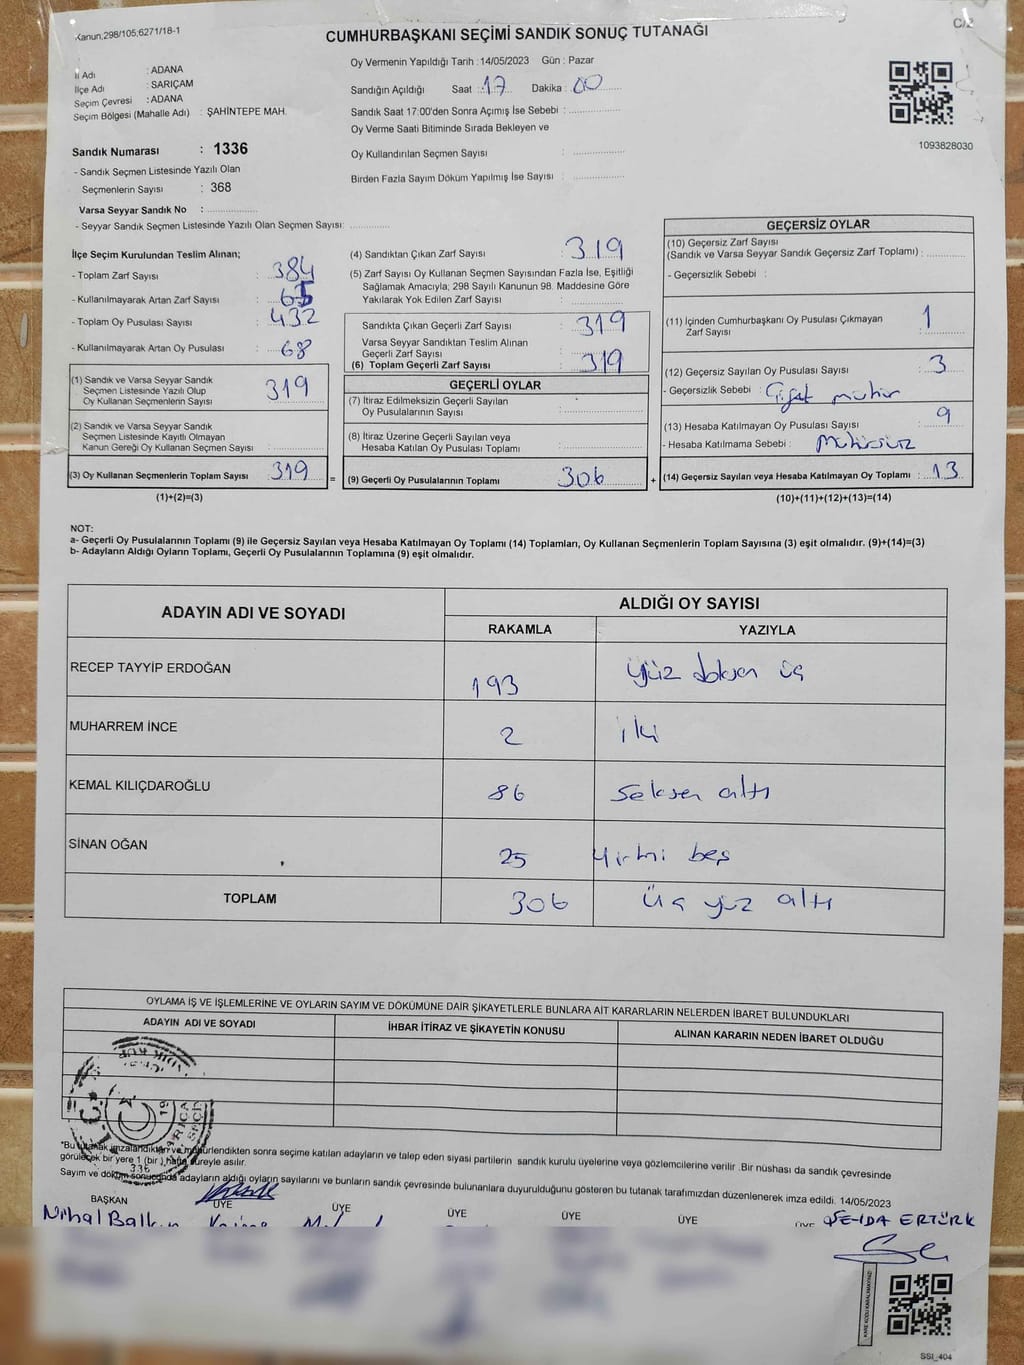 Kanun,298/105;6271/18-1
C/2
CUMHURBAŞKANI SEÇİMİ SANDIK SONUÇ TUTANAĞI
İl Adı : ADANA
İlçe Adı : SARIÇAM
Seçim Çevresi : ADANA
Seçim Bölgesi (Mahalle Adı) : ŞAHİNTEPE MAH.
Sandık Numarası : 1336
- Sandık Seçmen Listesinde Yazılı Olan
Seçmenlerin Sayısı : 368
Varsa Seyyar Sandık No :
- Seyyar Sandık Seçmen Listesinde Yazılı Olan Seçmen Sayısı:
Oy Vermenin Yapıldığı Tarih : 14/05/2023 Gün : Pazar
Sandığın Açıldığı Saat : 17 Dakika : 00
Sandık Saat 17:00'den Sonra Açımış İse Sebebi :
Oy Verme Saati Bitiminde Sırada Bekleyen ve
Oy Kullandırılan Seçmen Sayısı :
Birden Fazla Sayım Döküm Yapılmış İse Sayısı :
1093828030
İlçe Seçim Kurulundan Teslim Alınan;
- Toplam Zarf Sayısı : 384
- Kullanılmayarak Artan Zarf Sayısı : 65
- Toplam Oy Pusulası Sayısı : 432
- Kullanılmayarak Artan Oy Pusulası : 68
(1) Sandık ve Varsa Seyyar Sandık
Seçmen Listesinde Yazılı Olup
Oy Kullanan Seçmenlerin Sayısı : 319
(2) Sandık ve Varsa Seyyar Sandık
Seçmen Listesinde Kayıtlı Olmayan
Kanun Gereği Oy Kullanan Seçmen Sayısı :
(3) Oy Kullanan Seçmenlerin Toplam Sayısı : 319
(1)+(2)=(3)
=
(4) Sandıktan Çıkan Zarf Sayısı : 319
(5) Zarf Sayısı Oy Kullanan Seçmen Sayısından Fazla İse, Eşitliği
Sağlamak Amacıyla; 298 Sayılı Kanunun 98. Maddesine Göre
Yakılarak Yok Edilen Zarf Sayısı :
Sandıkta Çıkan Geçerli Zarf Sayısı : 319
Varsa Seyyar Sandıktan Teslim Alınan
Geçerli Zarf Sayısı :
(6) Toplam Geçerli Zarf Sayısı : 319
GEÇERLİ OYLAR
(7) İtiraz Edilmeksizin Geçerli Sayılan
Oy Pusulalarının Sayısı :
(8) İtiraz Üzerine Geçerli Sayılan veya
Hesaba Katılan Oy Pusulaları Toplamı :
(9) Geçerli Oy Pusulalarının Toplamı : 306
+
GEÇERSİZ OYLAR
(10) Geçersiz Zarf Sayısı
(Sandık ve Varsa Seyyar Sandık Geçersiz Zarf Toplamı) :
- Geçersizlik Sebebi :
(11) İçinden Cumhurbaşkanı Oy Pusulası Çıkmayan
Zarf Sayısı : 1
(12) Geçersiz Sayılan Oy Pusulası Sayısı : 3
- Geçersizlik Sebebi : Çift mühür
(13) Hesaba Katılmayan Oy Pusulası Sayısı : 9
- Hesaba Katılmama Sebebi : Mühürsüz
(14) Geçersiz Sayılan veya Hesaba Katılmayan Oy Toplamı : 13
(10)+(11)+(12)+(13)=(14)
NOT:
a- Geçerli Oy Pusulalarının Toplamı (9) ile Geçersiz Sayılan veya Hesaba Katılmayan Oy Toplamı (14) Toplamları, Oy Kullanan Seçmenlerin Toplam Sayısına (3) eşit olmalıdır. (9)+(14)=(3)
b- Adayların Aldığı Oyların Toplamı, Geçerli Oy Pusulalarının Toplamına (9) eşit olmalıdır.
ADAYIN ADI VE SOYADI ALDIĞI OY SAYISI
RAKAMLA YAZIYLA
RECEP TAYYİP ERDOĞAN 193 Yüz doksan üç
MUHARREM İNCE 2 iki
KEMAL KILIÇDAROĞLU 86 Seksen altı
SİNAN OĞAN 25 Yirmi beş
TOPLAM 306 Üç yüz altı
OYLAMA İŞ VE İŞLEMLERİNE VE OYLARIN SAYIM VE DÖKÜMÜNE DAİR ŞİKAYETLERLE BUNLARA AİT KARARLARIN NELERDEN İBARET BULUNDUKLARI
ADAYIN ADI VE SOYADI İHBAR İTİRAZ VE ŞİKAYETİN KONUSU ALINAN KARARIN NEDEN İBARET OLDUĞU
*Bu tutanak imzalandıktan ve mühürlendikten sonra seçime katılan adayların ve talep eden siyasi partilerin sandık kurulu üyelerine veya gözlemcilerine verilir .Bir nüshası da sandık çevresinde
görülecek bir yere 1 (bir ) hafta süreyle asılır.
Sayım ve döküm sonucunda adayların aldığı oyların sayılarını ve bunların sandık çevresinde bulunanlara duyurulduğunu gösteren bu tutanak tarafımızdan düzenlenerek imza edildi. 14/05/2023
BAŞKAN ÜYE ÜYE ÜYE ÜYE ÜYE ÜYE
Nihal ŞEYDA ERTÜRK
KARE KODU KARALAMAYINIZ!
SSI_404